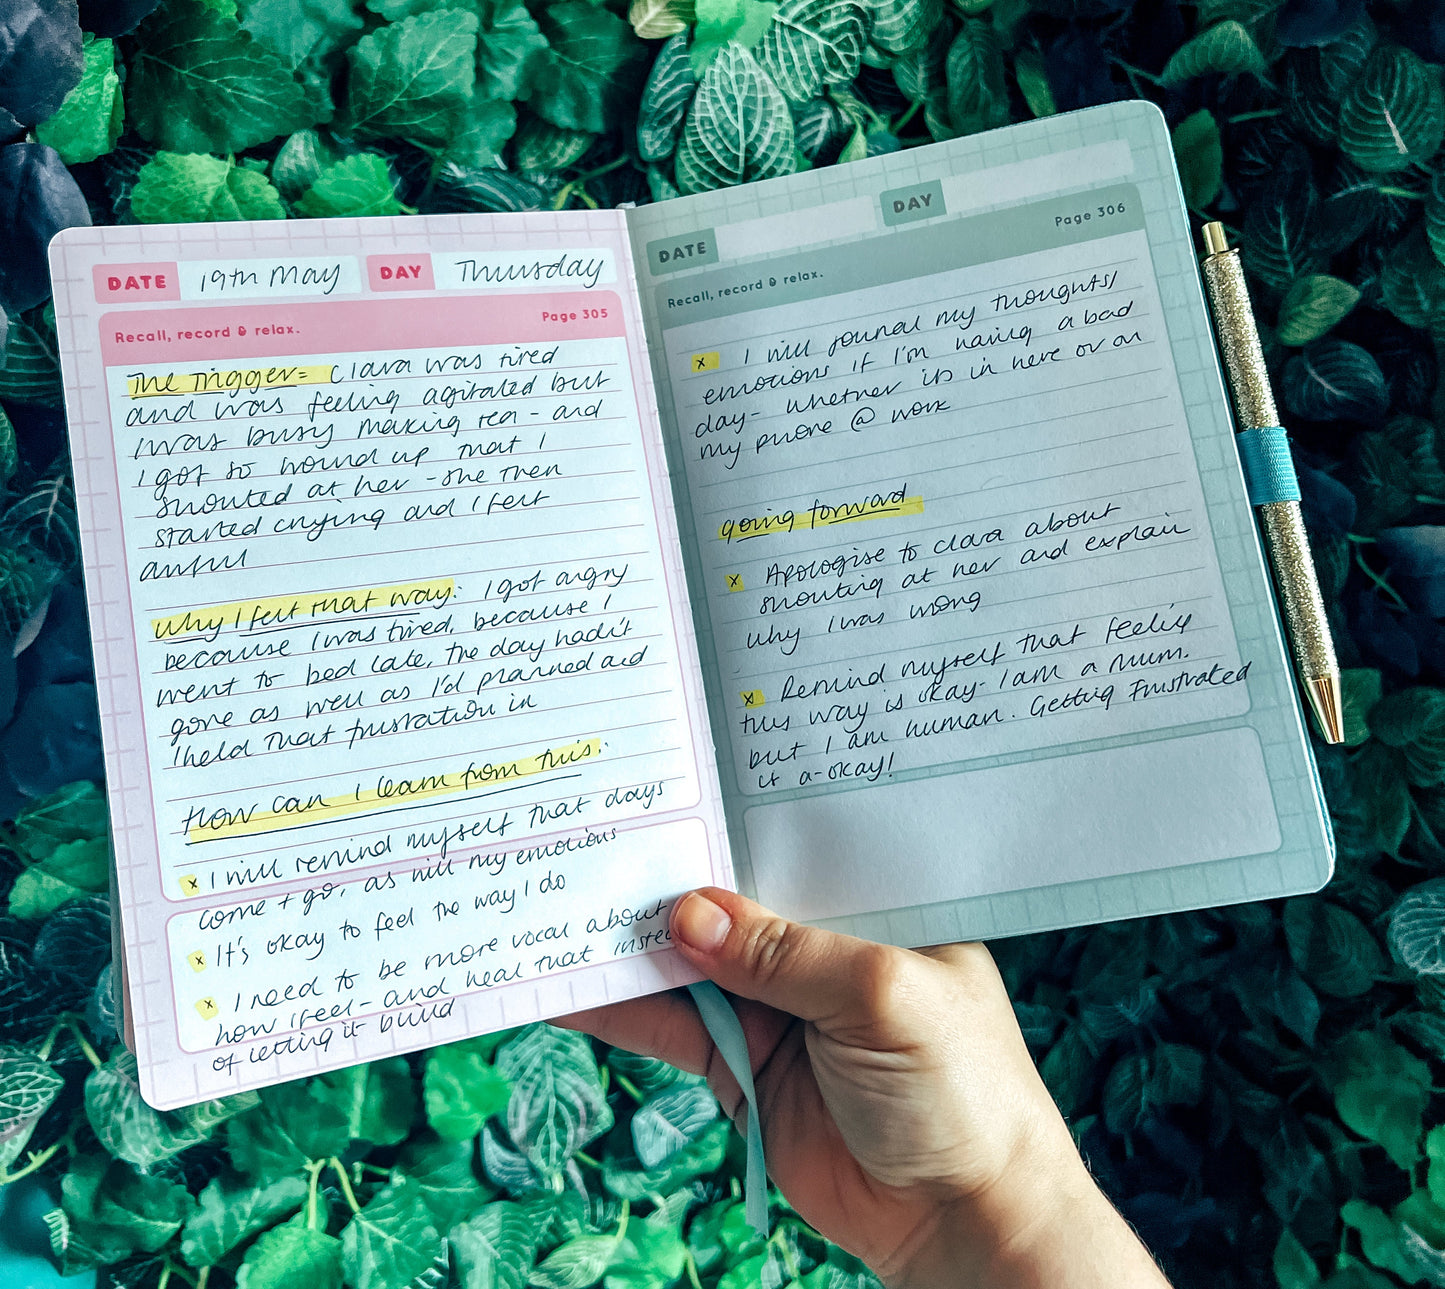 DATE 19th May DAY Thursday
Recall, record & relax. Page 305
The Trigger = Clara was tired
and was feeling agitated but
I was busy making tea - and
I got so wound up that I
shouted at her - she then
started crying and I felt
awful
Why I felt that way: I got angry
because I was tired, because I
went to bed late, the day hadn't
gone as well as I'd planned and
I held that frustration in
How can I learn from this:
x I will remind myself that days
come + go, as will my emotions
x It's okay to feel the way I do
x I need to be more vocal about
how I feel - and heal that instead
of letting it build
DATE DAY
Recall, record & relax. Page 306
x I will journal my thoughts/
emotions if I'm having a bad
day - whether it's in here or on
my phone @ work
going forward
x Apologise to Clara about
shouting at her and explain
why I was wrong
x Remind myself that feeling
this way is okay - I am a mum.
but I am human. Getting frustrated
is a-okay!